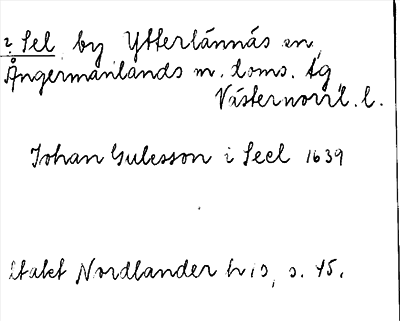 2 Sel by Ytterlännäs sn,
Ångermanlands m. doms. tg
Västernorrl. l.
Johan Gulesson i Seel 1639
Nordlander h s. 45.